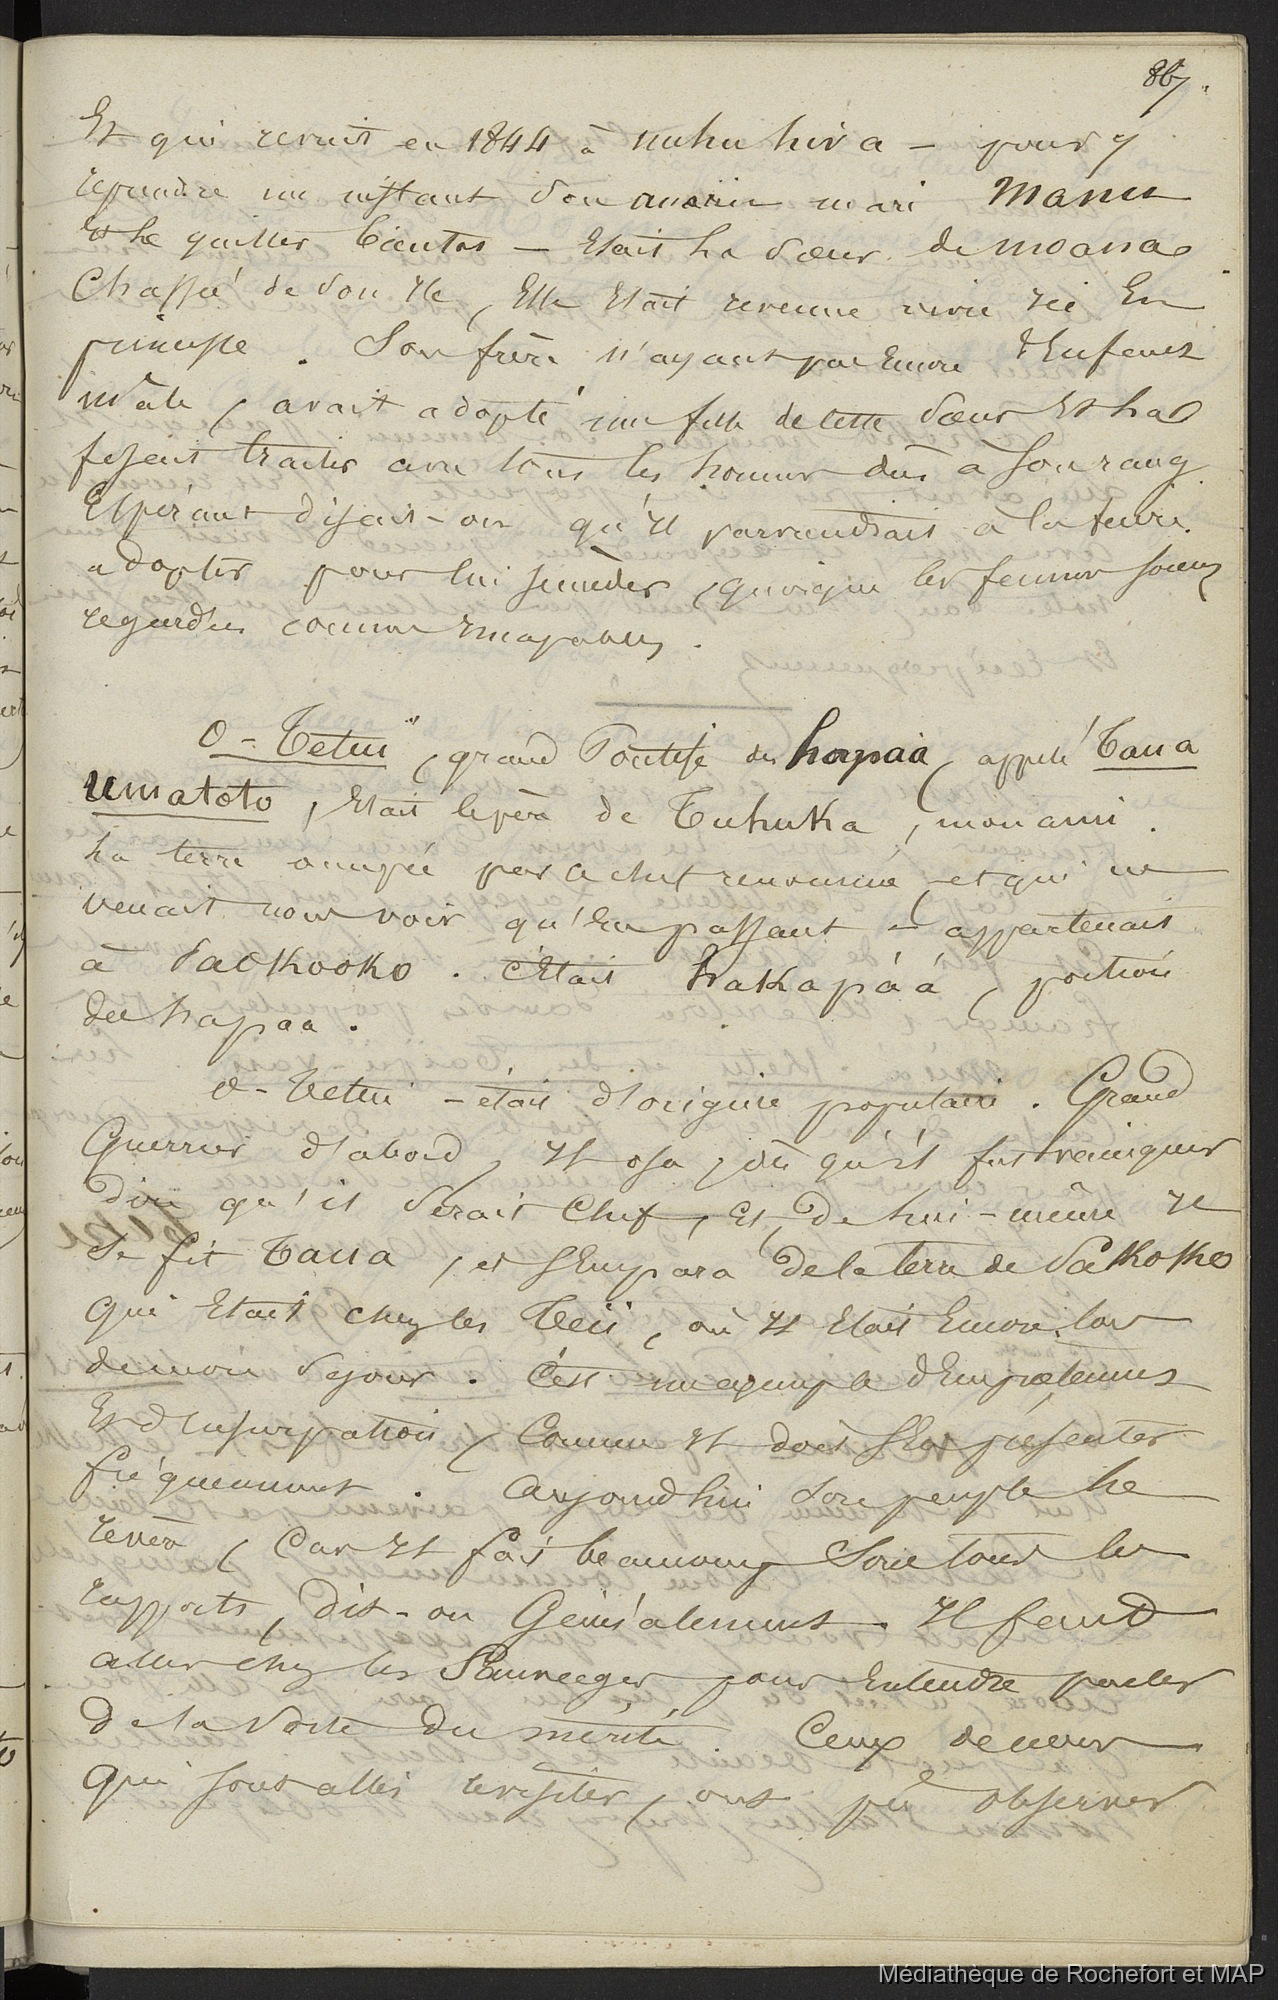 867.
Et qui revint en 1844 à nuhu hiva — pour y
reprendre un instant son ancien mari Manu
Et le quitter bientot — Etait la sœur de moana
Chassée de son Ile, Elle Etait revenue vivre ici En
principe. Son frère n'ayant pas Encore d'Enfent
mâle, avait adopté une fille de cette sœur Et la
fesait traiter avec tous les honneur dûs à son rang.
Espérant disait-on qu'Il parviendrait à la feire.
adopter pour lui succèder, quoique les femmes soient
regardées comme Incapables.
O-Tetui, grand Pontife des hapaà, appelé Taua
Umatoto, Etait le père de Tuhuka, mon ami.
La terre occupée par ce chef renommé, et qui ne
venait nous voir qu'En passant — appartenait
à Vaekooko. c'Etait hakapàá, portion
des hapaa.
O-Tetui — était d'origine populaire. Grand
Guerrier d'abord, Il osa, dès qu'il fut vainqueur
dire qu'il Serait Chef, Et, de lui-même Il
se fit Taua, et s'Empara de la terre de Vaékoko
qui Etait chez les Teii, où Il Etait Encore, lors
de mon séjour. C'est un exemple d'Empiétement
Et d'Usurpation, Comme Il doit s'En présenter
fréquemment. Aujourdhui son peuple le
revère, Car Il fait beaucoup Sous tous les
rapports, dit-on Généralement. Il feut
aller chez les Sauveges pour Entendre parler
de la Sorte du mérite. Ceux de nous
qui sont allés le visiter, ont pû observer
Médiathèque de Rochefort et MAP